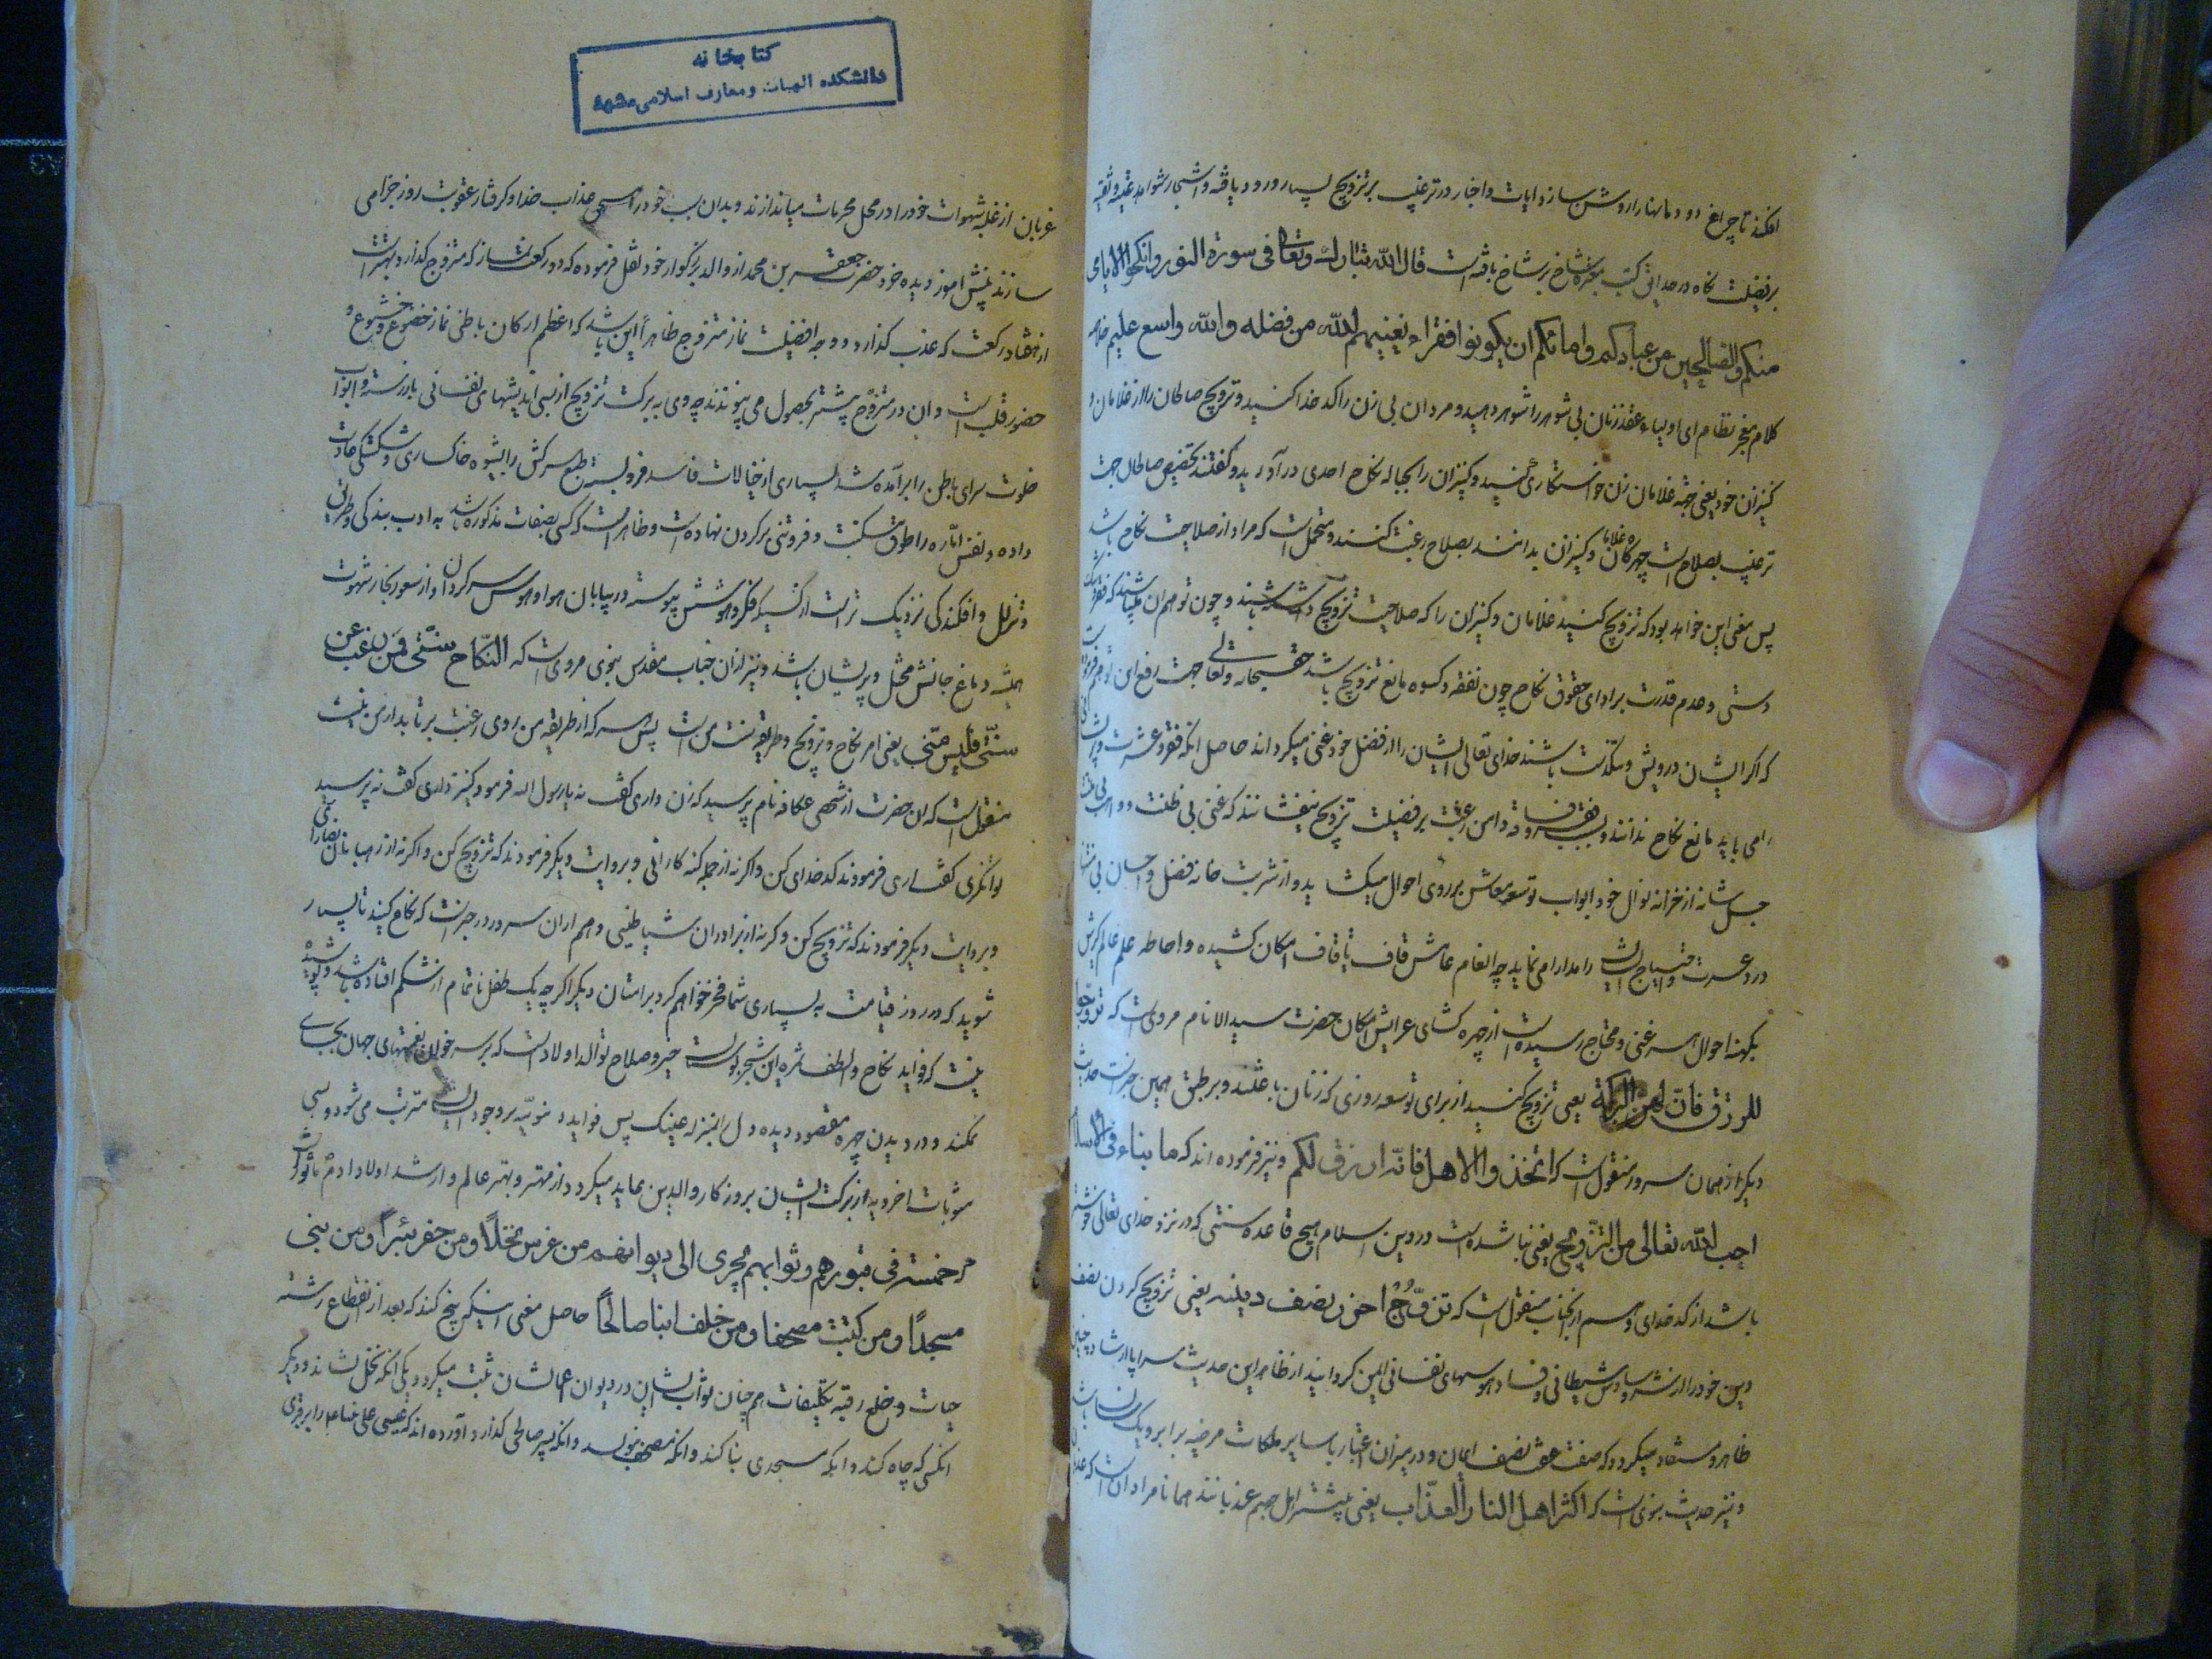 افکند تا چراغ دودمانها را روشن سازد و ایات و اخبار در ترغیب بر تزویج بسیار ورود یافته و اشجار شواهد
بر فضیلت نکاح در حدائق کتب معتبره شاخ بر شاخ بافته است قال الله تبارک وتعالی فی سورة النور وانکحوا الایامی
منکم والصالحین من عبادکم وامائکم ان یکونوا فقراء یغنیهم الله من فضله والله واسع علیم
کلام معجز نظام ای اولیاء و عقد زنان بی شوهر را شوهر دهید و مردان بی زن را کدخدا کنید و تزویج صالحان را از غلامان و
کنیزان خود یعنی جهة غلامان زن خواستکاری کنید و کنیزان را بحباله نکاح احدی در آورید و کفتند تخصیص صالحان جهت
ترغیب بصلاح است چه هرکاه غلامان و کنیزان بدانند بصلاح رغبت کنند و محتمل است که مراد از صلاحیت نکاح باشد
پس معنی این خواهد بود که تزویج کنید غلامان و کنیزان را که صلاحیت تزویج داشته باشند و چون توهم ان میباشد که فقر
دستی و عدم قدرت بر ادای حقوق نکاح چون نفقه و کسوه مانع تزویج باشد حق سبحانه وتعالی جهت رفع این توهم فرمود
که اکر ایشان درویش و تنکدست باشند خدای تعالی ایشان را از فضل خود غنی میکرداند حاصل انکه فقر و عسرت
را می باید مانع نکاح ندانند و بسبب فقر و فاقه دامن رغبت بر فضیلت تزویج نیفشانند که غنی بی ظنت
جل شانه از خزانه نوال خود ابواب توسعه معاش بر روی احوال میکشاید و از شربت خانه فضل و احسان بی
درد عسرت و احتیاج ایشان را مداوا می نماید چه انعام عامش قاف تا قاف امکان کشیده و احاطه علم عالم
بکهنه احوال هر غنی و محتاج رسیده است از چهره کشای عرایش امکان حضرت سید الانام مروی است که تزوجوا
للرزق فان لهن البرکة یعنی تزویج کنید از برای توسعه روزی که زنان باعثند و بر طبق همین خبر است حدیث
دیکر از همان سرور منقول است که اتخذوا الاهل فانه ارزق لکم و نیز فرموده اند که ما بناء فی الاسلام
احب الله تعالی من التزویج یعنی بنا نشده است در دین اسلام هیچ قاعده سنتی که در نزد خدای تعالی
باشد از کدخدای و هم از انجناب منقول است که تزوجوا احرز نصف دینه یعنی تزویج کردن نصف
دین خود را از شر وساوس شیطانی و فساد هوسهای نفسانی ایمن کردانید از ظاهر این حدیث سراپا ارشاد چنین
ظاهر و مستفاد میکردد که صفت عفت نصف ایمان و در میزان اعتبار با سایر ملکات مرضیه برابر و یکسان باشد
و نیز حدیث نبوی است که اکثر اهل النار العزاب یعنی بیشتر اهل جهنم عذبانند همانا مراد ان است که
کتابخانه
دانشکده الهیات و معارف اسلامی مشهد
عزبان از غلبه شهوات خود را در محل محرمات میاندازند و بدان سبب خود را مستحق عذاب خدا و کرفتار عقوبت روز جزا می
سازند بینش اموز دیده خرد حضرت جعفر بن محمد از والد بزرکوار خود نقل فرموده که دو رکعت نماز که متزوج کذارد بهتر است
از هفتاد رکعت که عذب کذارد و وجه افضلیت نماز متزوج ظاهرا این باشد که اعظم ارکان باطنی نماز خضوع و خشوع و
حضور قلب است و ان در متزوج بیشتر بحصول می پیوندد چه وی به برکت تزویج از بسی اندیشهای نفسانی باز رسته و ابواب
خلوت سرای باطن را بر آمد شد بسیاری از خیالات فاسد فرو بسته طبع سرکش را بشیوه خاکساری و شکستکی عادت
داده و نفس اماره را طوق مسکنت و فروتنی بر کردن نهاده است و ظاهر است که کسی بصفات مذکوره باشد به ادب بندکی و طریق
و تذلل و افکندکی نزدیک تر است از کسیکه فکر و هوشش پیوسته در بیابان هوا و هوس سرکردان و از صعود بخار شهوت
همیشه دماغ جانش مختل و پریشان باشد و نیز از ان جناب مقدس نبوی مرویست که النکاح سنتی فمن رغب عن
سنتی فلیس منی یعنی امر نکاح و تزویج و طریقه سنت من است پس هر که از طریقه من روی رغبت برتابد از من نیست
منقول است که ان حضرت از شخصی عکاف نام پرسید که زن داری کفت نه یا رسول الله فرمود کنیز داری کفت نه پرسید
توانکری کفت اری فرمودند کدخدای کن واکر نه از جمله کنه کارانی و بروایت دیکر فرمودند که تزویج کن و اکر نه از رهبانان نصارا
و بروایت دیکر فرمودند که تزویج کن و کرنه از برادران شیاطینی و هم از ان سرور در خبر است که نکاح کنید تا بسیار
شوید که در روز قیامت به بسیاری شما فخر خواهم کرد بر امتان دیکر اکر چه یک طفل ناتمام از شکم افتاده باشد
نیست که فواید نکاح و الطف ثمره این شجر بوستان خیر و صلاح توالد اولاد است که بر سر خوان نعمتهای جهان بجای
نمکند و در دیدن چهره مقصود دیده دل را بمنزله عینک پس فواید دنیویه بر وجود ایشان مترتب می شود و بسی
مثوبات اخرویه از برکت ایشان بروزکار والدین عاید میکردد از مهتر و بهتر عالم و ارشد اولاد ادم ماثور است
خمسة فی قبورهم وثوابهم یجری الی دیوانهم من غرس نخلا ومن حفر بئرا ومن بنی
مسجدا ومن کتب مصحفا ومن خلف ابنا صالحا حاصل معنی اینکه پنج کند که بعد از انقطاع رشته
حیات و خلع رقبه تکلیفات هم چنان ثواب ایشان در دیوان اعمالشان ثبت میکردد یکی انکه نخل نشاند و دیکر
انکسی که چاه کند و انکه مسجدی بنا کند و انکه مصحف نویسد و انکه پسر صالحی کذارد آورده اند که عیسی علی نبینا